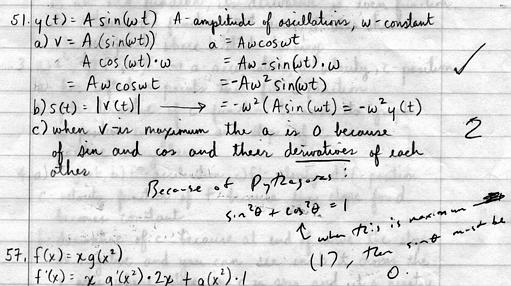 51. y(t) = A sin(ωt) A - amplitude of oscillations, ω - constant
a) v = A (sin(ωt)) a = Aω cos ωt
A cos (ωt) · ω = Aω - sin(ωt) · ω
= Aω cos ωt = -Aω² sin(ωt)
b) s(t) = |v(t)| ⟶ = -ω² (A sin(ωt) = -ω² y(t)
c) when v is maximum the a is 0 because
of sin and cos and their derivatives of each
other
2
Because of Pythagoras:
sin²θ + cos²θ = 1
↑ when this is maximum
(1), then sinθ must be
0.
57. f(x) = x g(x²)
f'(x) = x g'(x²) · 2x + g(x²) · 1